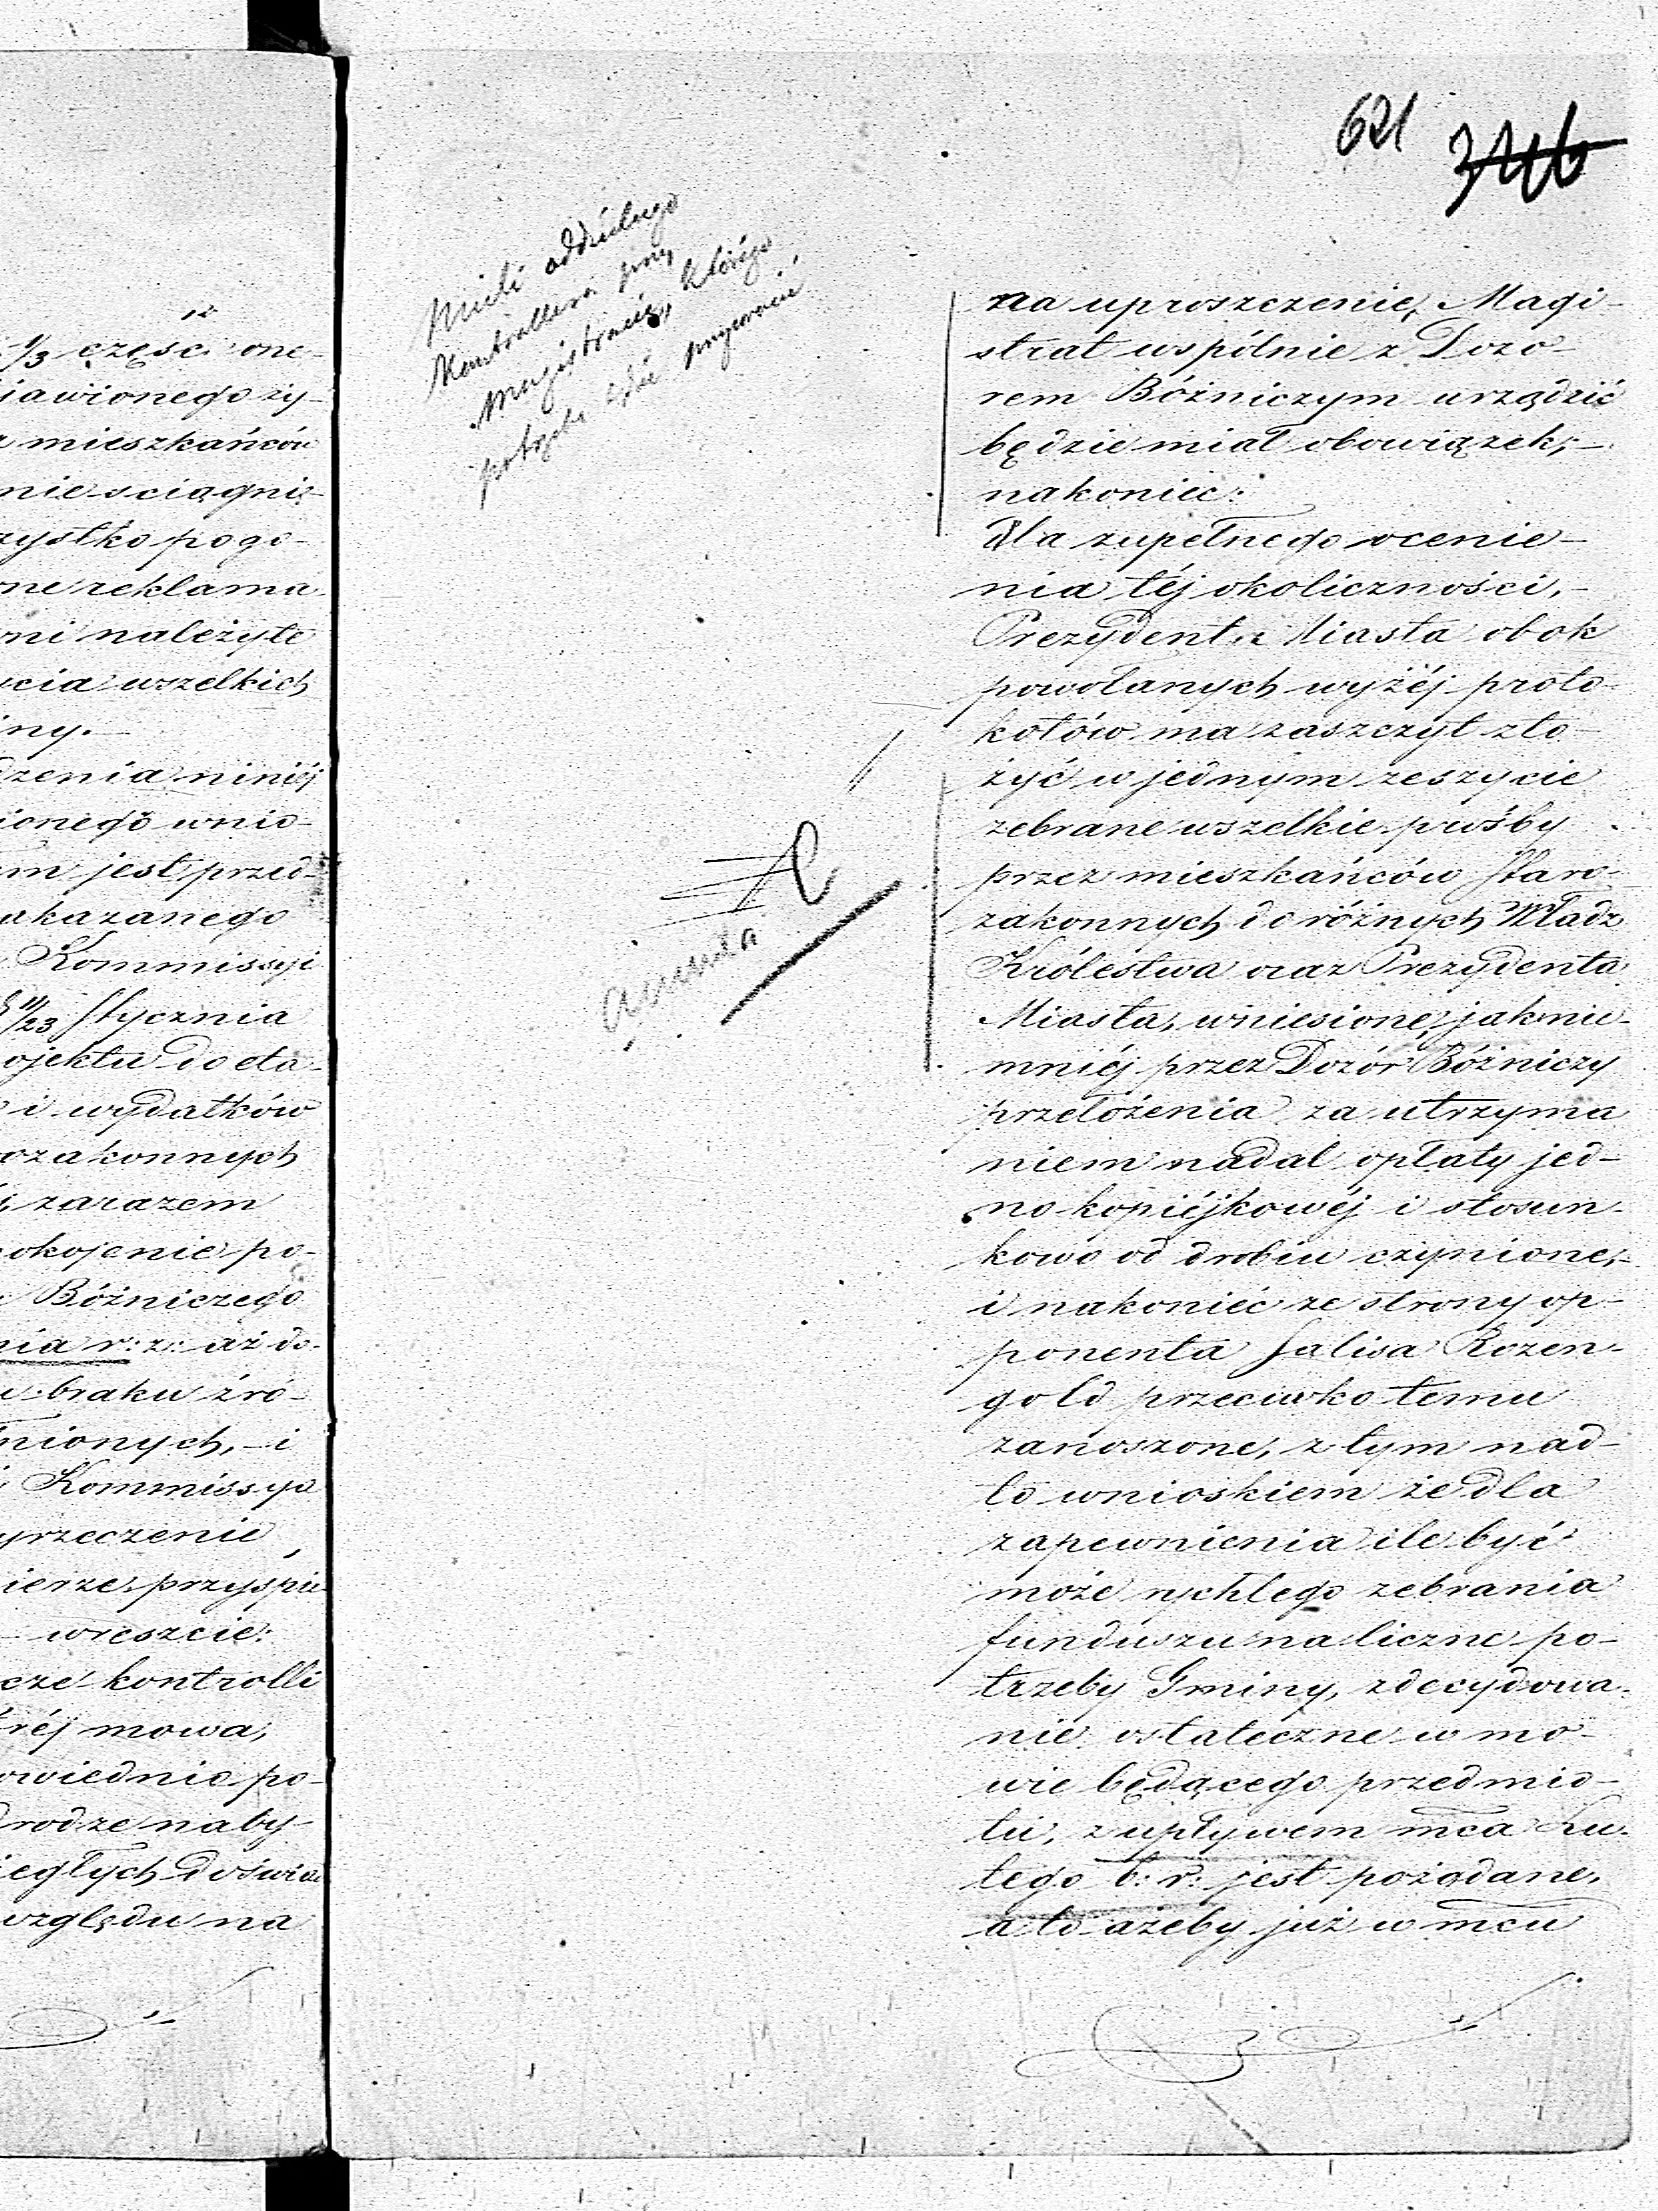 1/3 części one-
jawionego ży-
mieszkańców
nie sciągnię-
zystko pogo-
one reklama-
ni należyte
cia wszelkich
iny.—
dzenia niniéj
ionego wnio-
m jest przed-
ukazanego
Kommissyi
11/23 Stycznia
ojektu do eta-
i wydatków
ozakonnych
zarazem
okojenie po-
Bóżniczego
nia r: z: aż do-
braku źró-
nionych,— i
Kommissya
yrzeczenie,
ierze przyspie-
— wreszcie:
cze kontrolli
réj mowa,
owiednio po-
drodze naby-
iegłych doświad
względu na
621 
mieli oddzielnego
Kontrollera przy
Magistracie, którego

Ammenda
na uproszczenie, Magi-
strat wspólnie z Dozo-
rem Bóżniczym urządzić
będzie miał obowiązek;—
nakoniec:
Dla zupełnego ocenie-
nia téj okoliczności,—
Prezydent Miasta obok
powołanych wyżéj proto-
kołów ma zaszczyt zło-
żyć w jednym zeszycie
zebrane wszelkie prośby
przez mieszkańców Staro-
zakonnych do różnych Władz
Królestwa oraz Prezydenta
Miasta, wniesione, jak nie-
mniéj przez Dozór Bóżniczy
przełożenia za utrzyma
niem nadal opłaty jed-
no kopiéjkowéj i stosun-
kowo od drobiu czynione,—
i nakonieć ze strony op-
ponenta Salisa Rozen-
gold przeciwko temu
zanoszone, z tym nad-
to wnioskiem że dla
zapewnienia ile być
może rychlego zebrania
funduszu na liczne po-
trzeby Gminy, zdecydowa-
nie ostateczne w mo-
wie będącego przedmio-
tu, z upływem mca Lu-
tego b: r: jest pożądane,
a to ażeby już w mcu